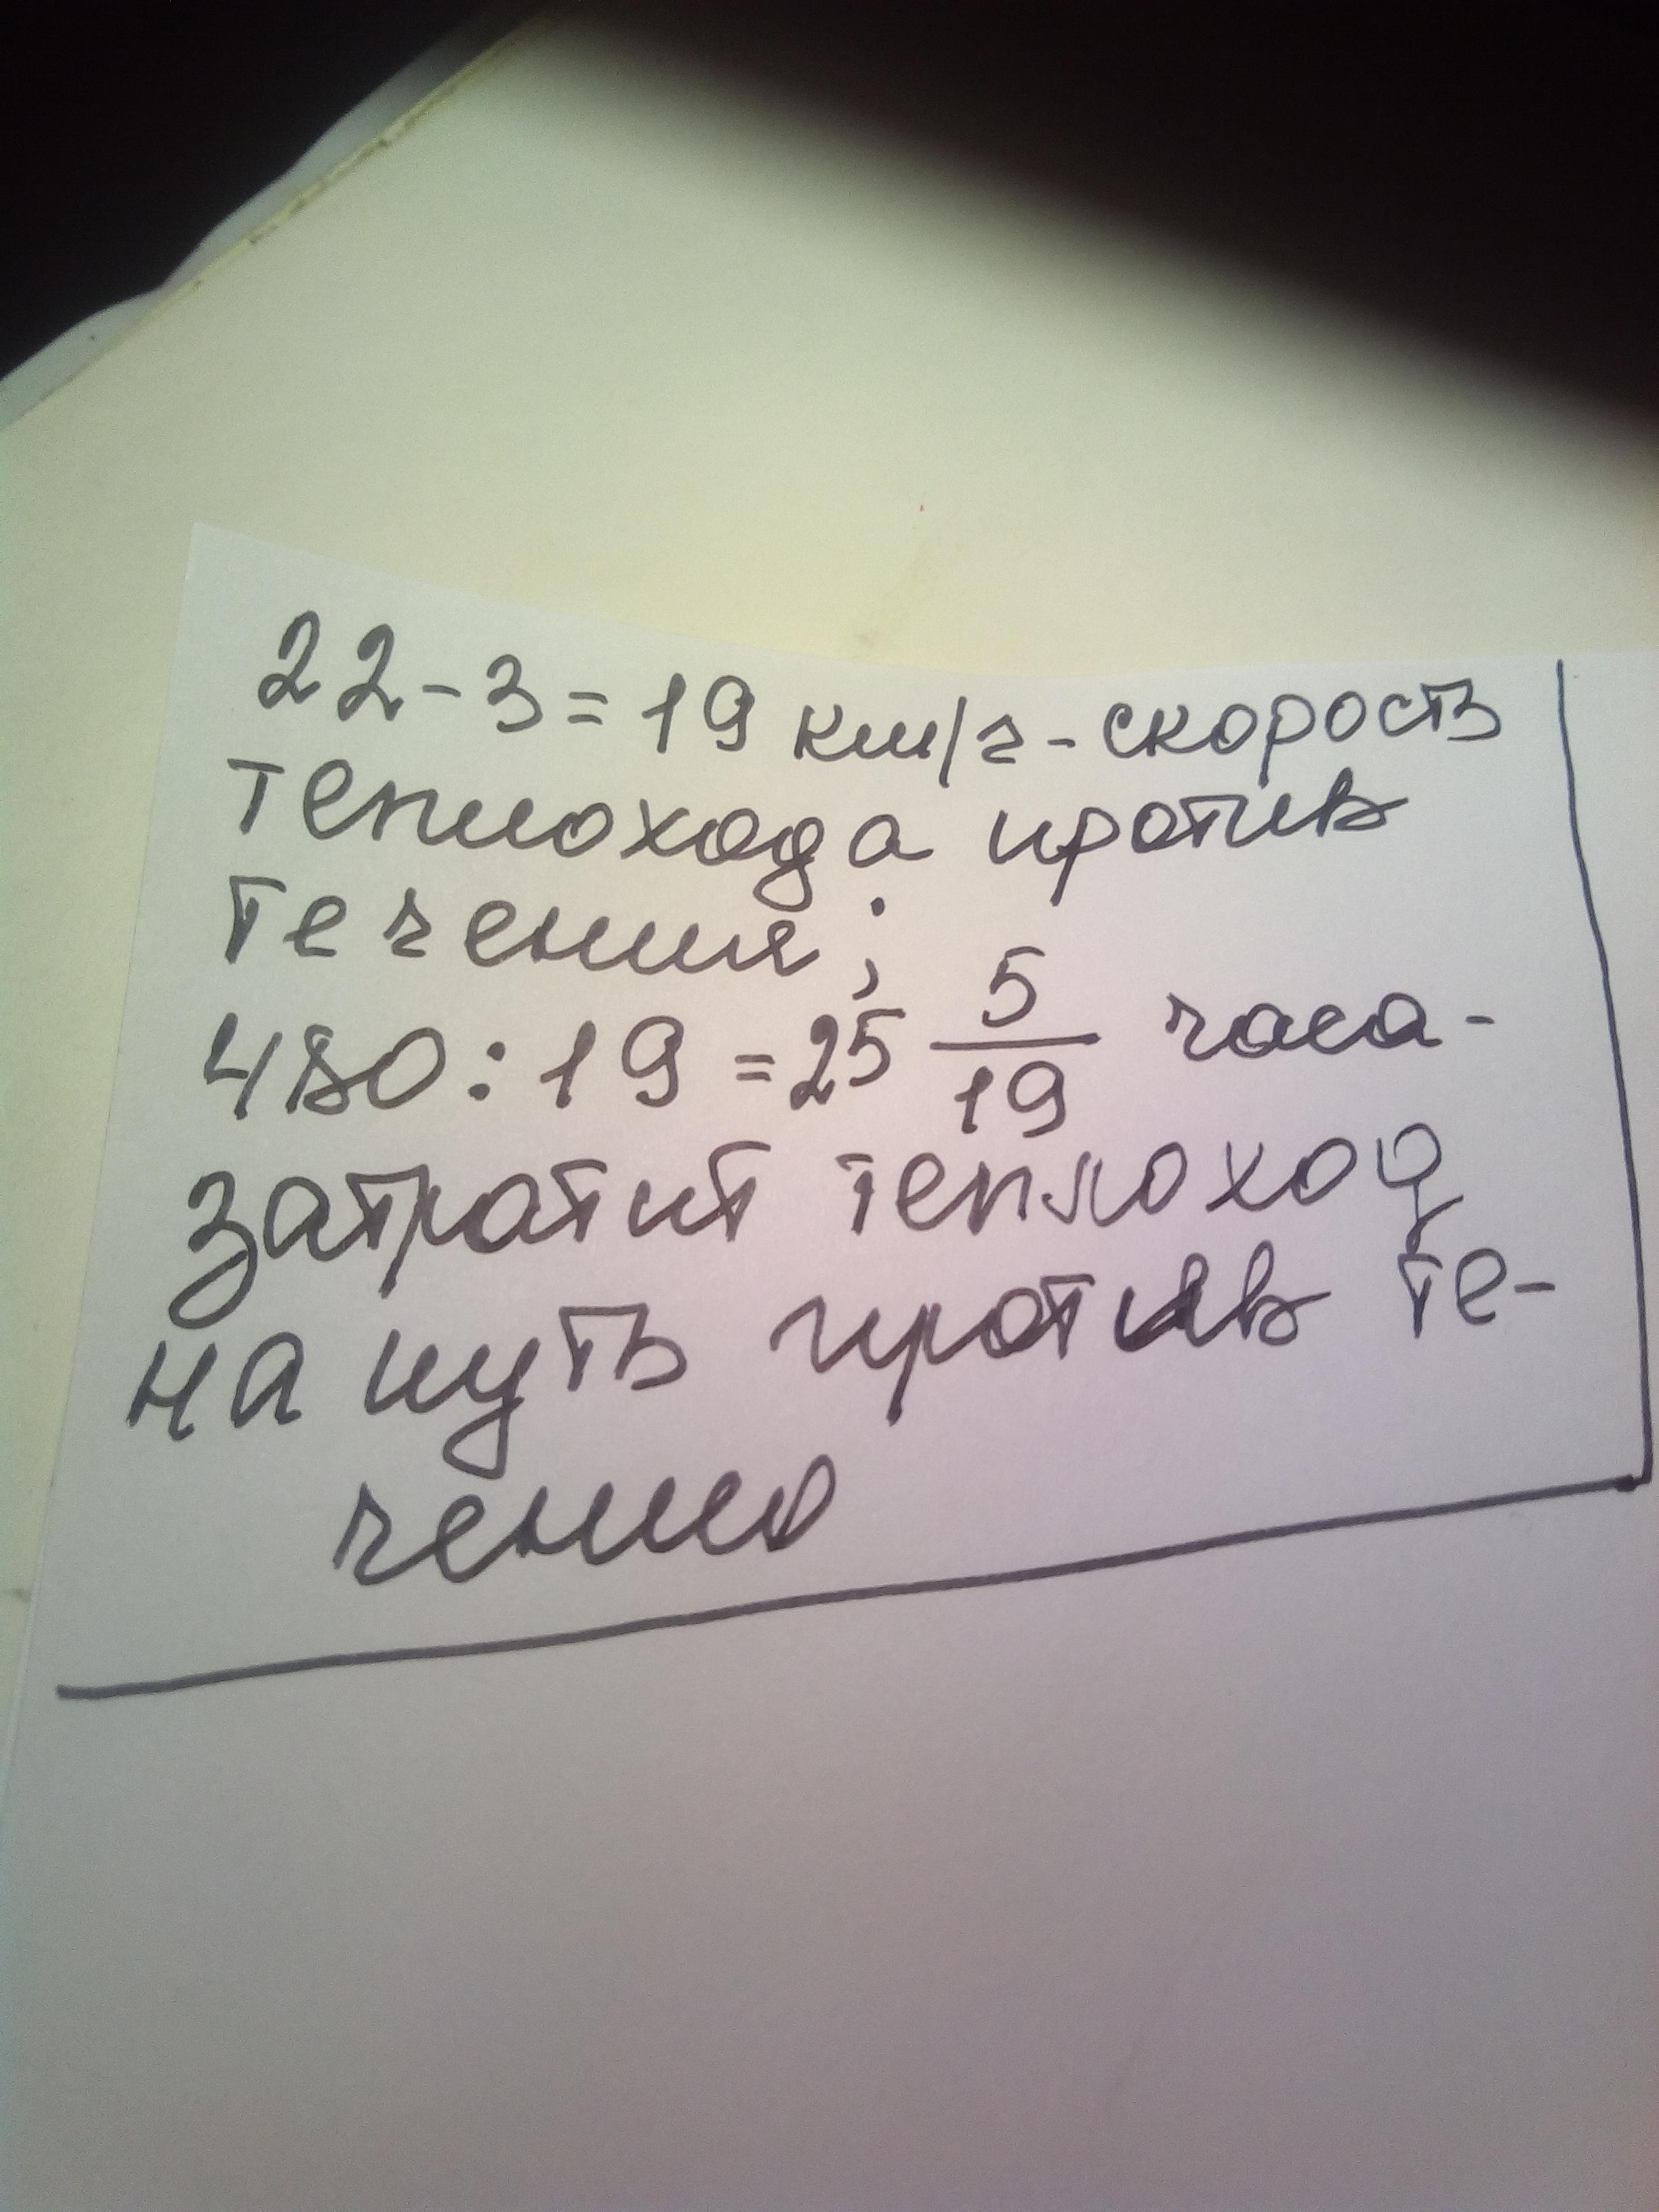 22-3=19 км/ч-скорость
теплохода против
течения;
480:19=25 5/19 часа-
затратит теплоход
на путь против те-
чению